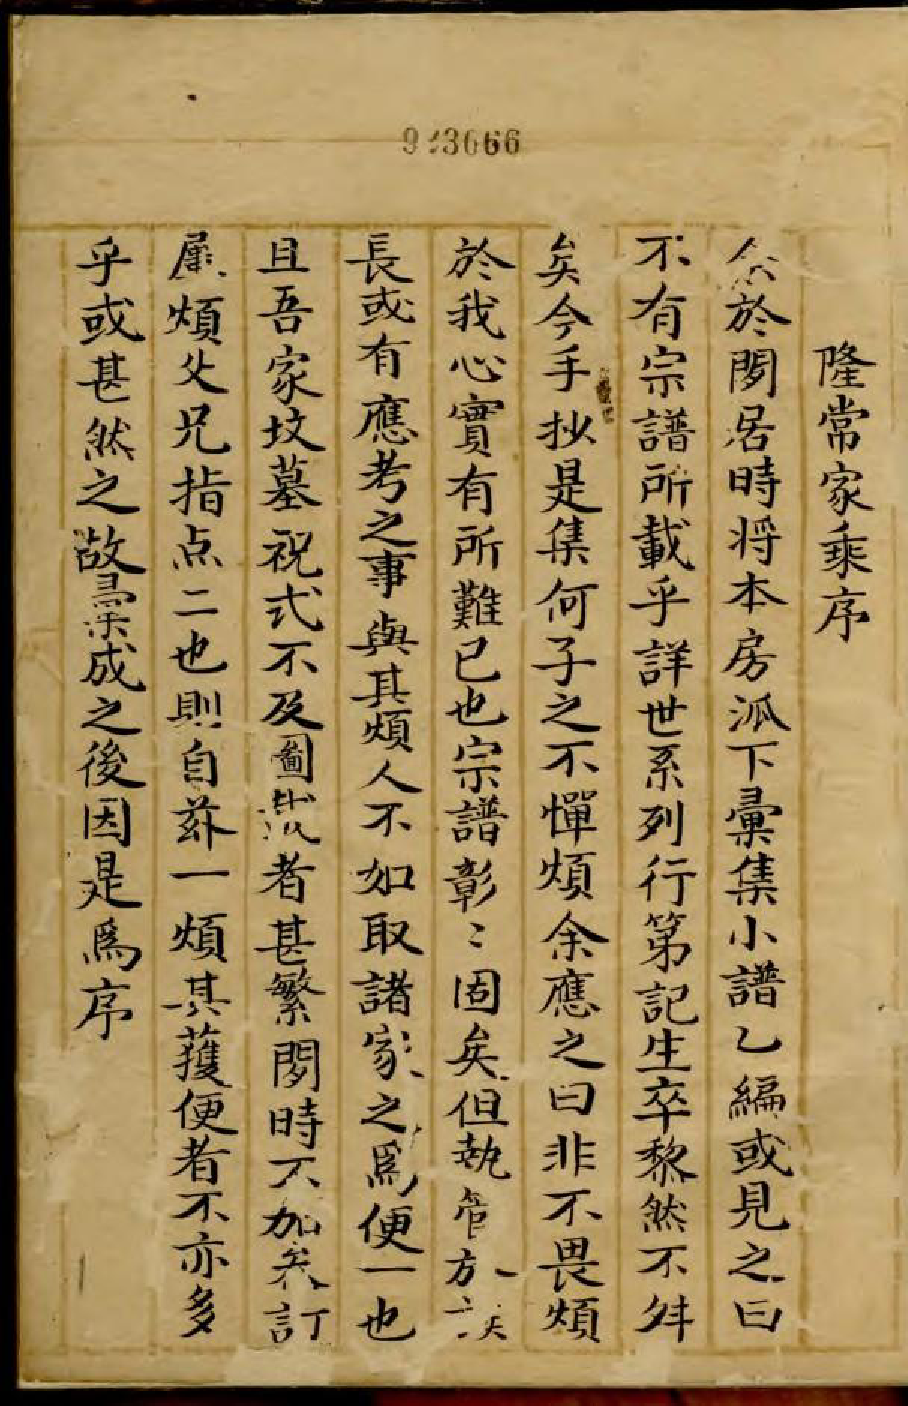 923666
隆常家乘序
余於閒居時將本房派下彙集小譜乙編或見之曰
不有宗譜所載乎詳世系列行第記生卒黎然不舛
矣今手抄是集何子之不憚煩余應之曰非不畏煩
於我心實有所難已也宗譜彰〻固矣但執管方
長或有應考之事與其煩人不如取諸家之爲便一也
且吾家坟墓祝式不及圖載者甚繁閒時不加叅訂
屢煩父兄指点二也則自茲一煩其獲便者不亦多
乎或甚然之故彙成之後因是爲序